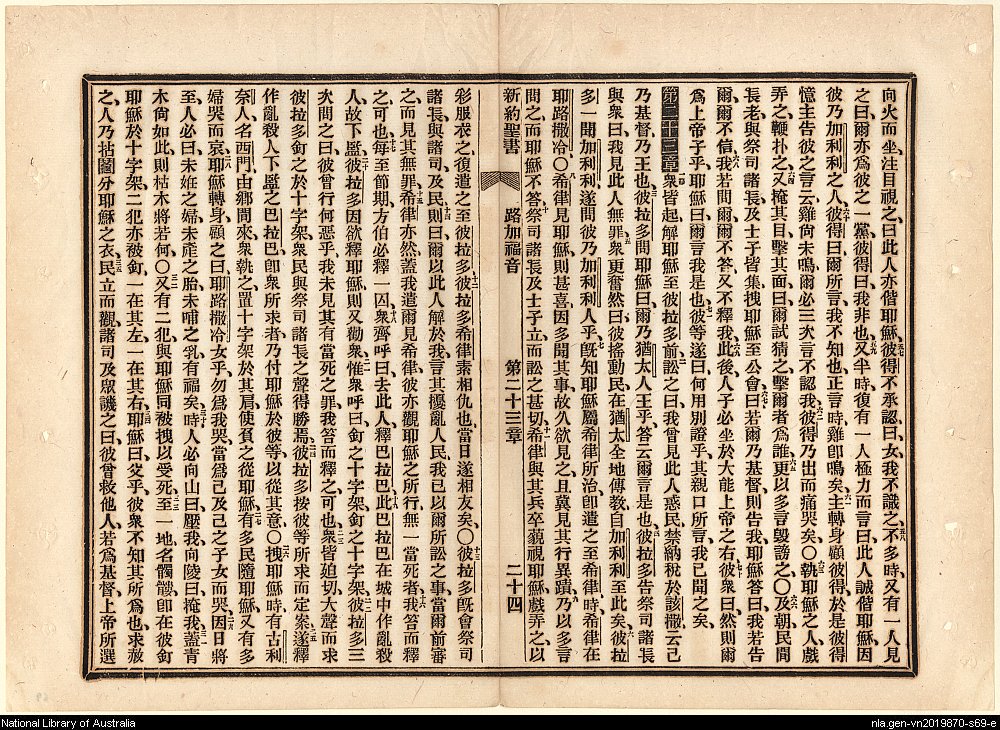 向火而坐注目視之曰此人亦偕耶穌彼得不承認曰女我不識之不多時又有一人見
之曰爾亦爲彼之一黨彼得曰我非也又半時復有一人極力而言曰此人誠偕耶穌因
彼乃加利利之人彼得曰爾所言我不知也正言時雞卽鳴矣主轉身顧彼得於是彼得
憶主告彼之言云雞尙未鳴爾必三次言不認我彼得乃出而痛哭矣○執耶穌之人戲
弄之鞭朴之又掩其目擊其面曰爾試猜之擊爾者爲誰更以多言毀謗之○及朝民間
長老與祭司諸長及士子皆集拽耶穌至公會曰若爾乃基督則告我耶穌答曰我若告
爾爾不信我若問爾爾不答又不釋我此後人子必坐於大能上帝之右彼衆曰然則爾
爲上帝子乎耶穌曰爾言我是也彼等遂曰何用別證乎其親口所言我已聞之矣
第二十三章衆皆起解耶穌至彼拉多前訟之曰我曾見此人惑民禁納稅於該撒云己
乃基督乃王也彼拉多問耶穌曰爾乃猶太人王乎答云爾言是也彼拉多告祭司諸長
與衆曰我見此人無罪衆更奮然曰彼搖動民在猶太全地傳敎自加利利至此矣彼拉
多一聞加利利遂問彼乃加利利人乎旣知耶穌屬希律所治卽遣之至希律時希律在
耶路撒冷○希律見耶穌則甚喜因多聞其事故久欲見之且冀見其行異蹟乃以多言
問之而耶穌不答祭司諸長及士子立而訟之甚切希律與其兵卒藐視耶穌戲弄之以
新約聖書 路加福音 第二十三章 二十四
彩服衣之復遣之至彼拉多彼拉多希律素相仇也當日遂相友矣○彼拉多旣會祭司
諸長與諸司及民則曰爾以此人解於我言其擾亂人民我已以爾所訟之事當爾前審
之而見其無罪希律亦然蓋我遣爾見希律彼亦觀耶穌之所行無一當死者我笞而釋
之可也每至節期方伯必釋一囚衆齊呼曰去此人釋巴拉巴此巴拉巴在城中作亂殺
人故下監彼拉多因欲釋耶穌則又勸衆惟衆呼曰釘之十字架釘之十字架彼拉多三
次問之曰彼曾行何惡乎我未見其有當死之罪我笞而釋之可也衆皆廹切大聲而求
彼拉多釘之於十字架衆民與祭司諸長之聲得勝焉彼拉多按彼等所求而定案遂釋
作亂殺人下監之巴拉巴卽衆所求者乃付耶穌於彼等以從其意○拽耶穌時有古利
奈人名西門由鄉間來衆執之置十字架於其肩使負之從耶穌有多民隨耶穌又有多
婦哭而哀耶穌轉身顧之曰耶路撒冷女乎勿爲我哭當爲己及己之子女而哭因日將
至人必曰未姙之婦未產之胎未哺之乳有福矣時人必向山曰壓我向陵曰掩我蓋靑
木尙如此則枯木將若何○又有二犯與耶穌同被拽以受死至一地名髑髏卽在彼釘
耶穌於十字架二犯亦被釘一在其左一在其右耶穌曰父乎彼衆不知其所爲也求赦
之人乃拈鬮分之耶穌之衣民立而觀諸司及衆譏之曰彼曾救他人若爲基督上帝所選
National Library of Australia
nla.gen-vn2019870-s69-e